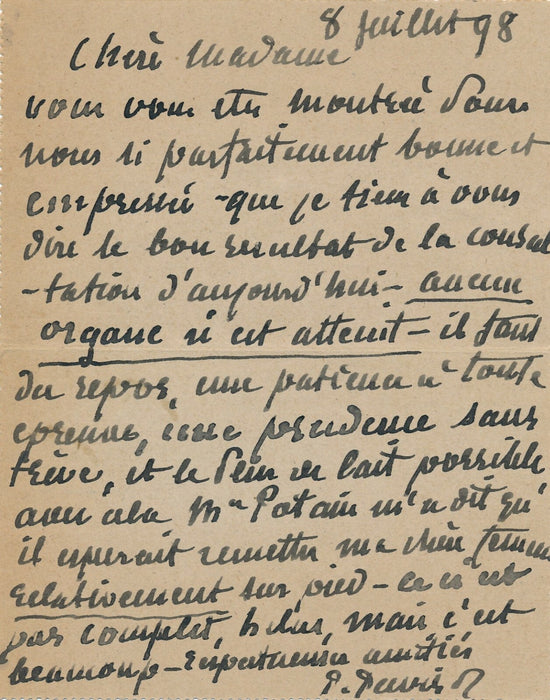 8 Juillet 98
Chère Madame
vous vous êtes montrée pour
nous si parfaitement bonne et
empressée - que je tiens à vous
dire le bon resultat de la consul
-tation d'aujourd'hui - aucun
organe n'est atteint - il faut
du repos, une patience à toute
epreuve, une prudence sans
trève, et le plus de lait possible
avec cela Mr Potain m'a dit qu'
il espérait remettre ma chère femme
relativement sur pied - ce n'est
pas complet, hélas, mais c'est
beaucoup - Respectueuses amitiés
P.